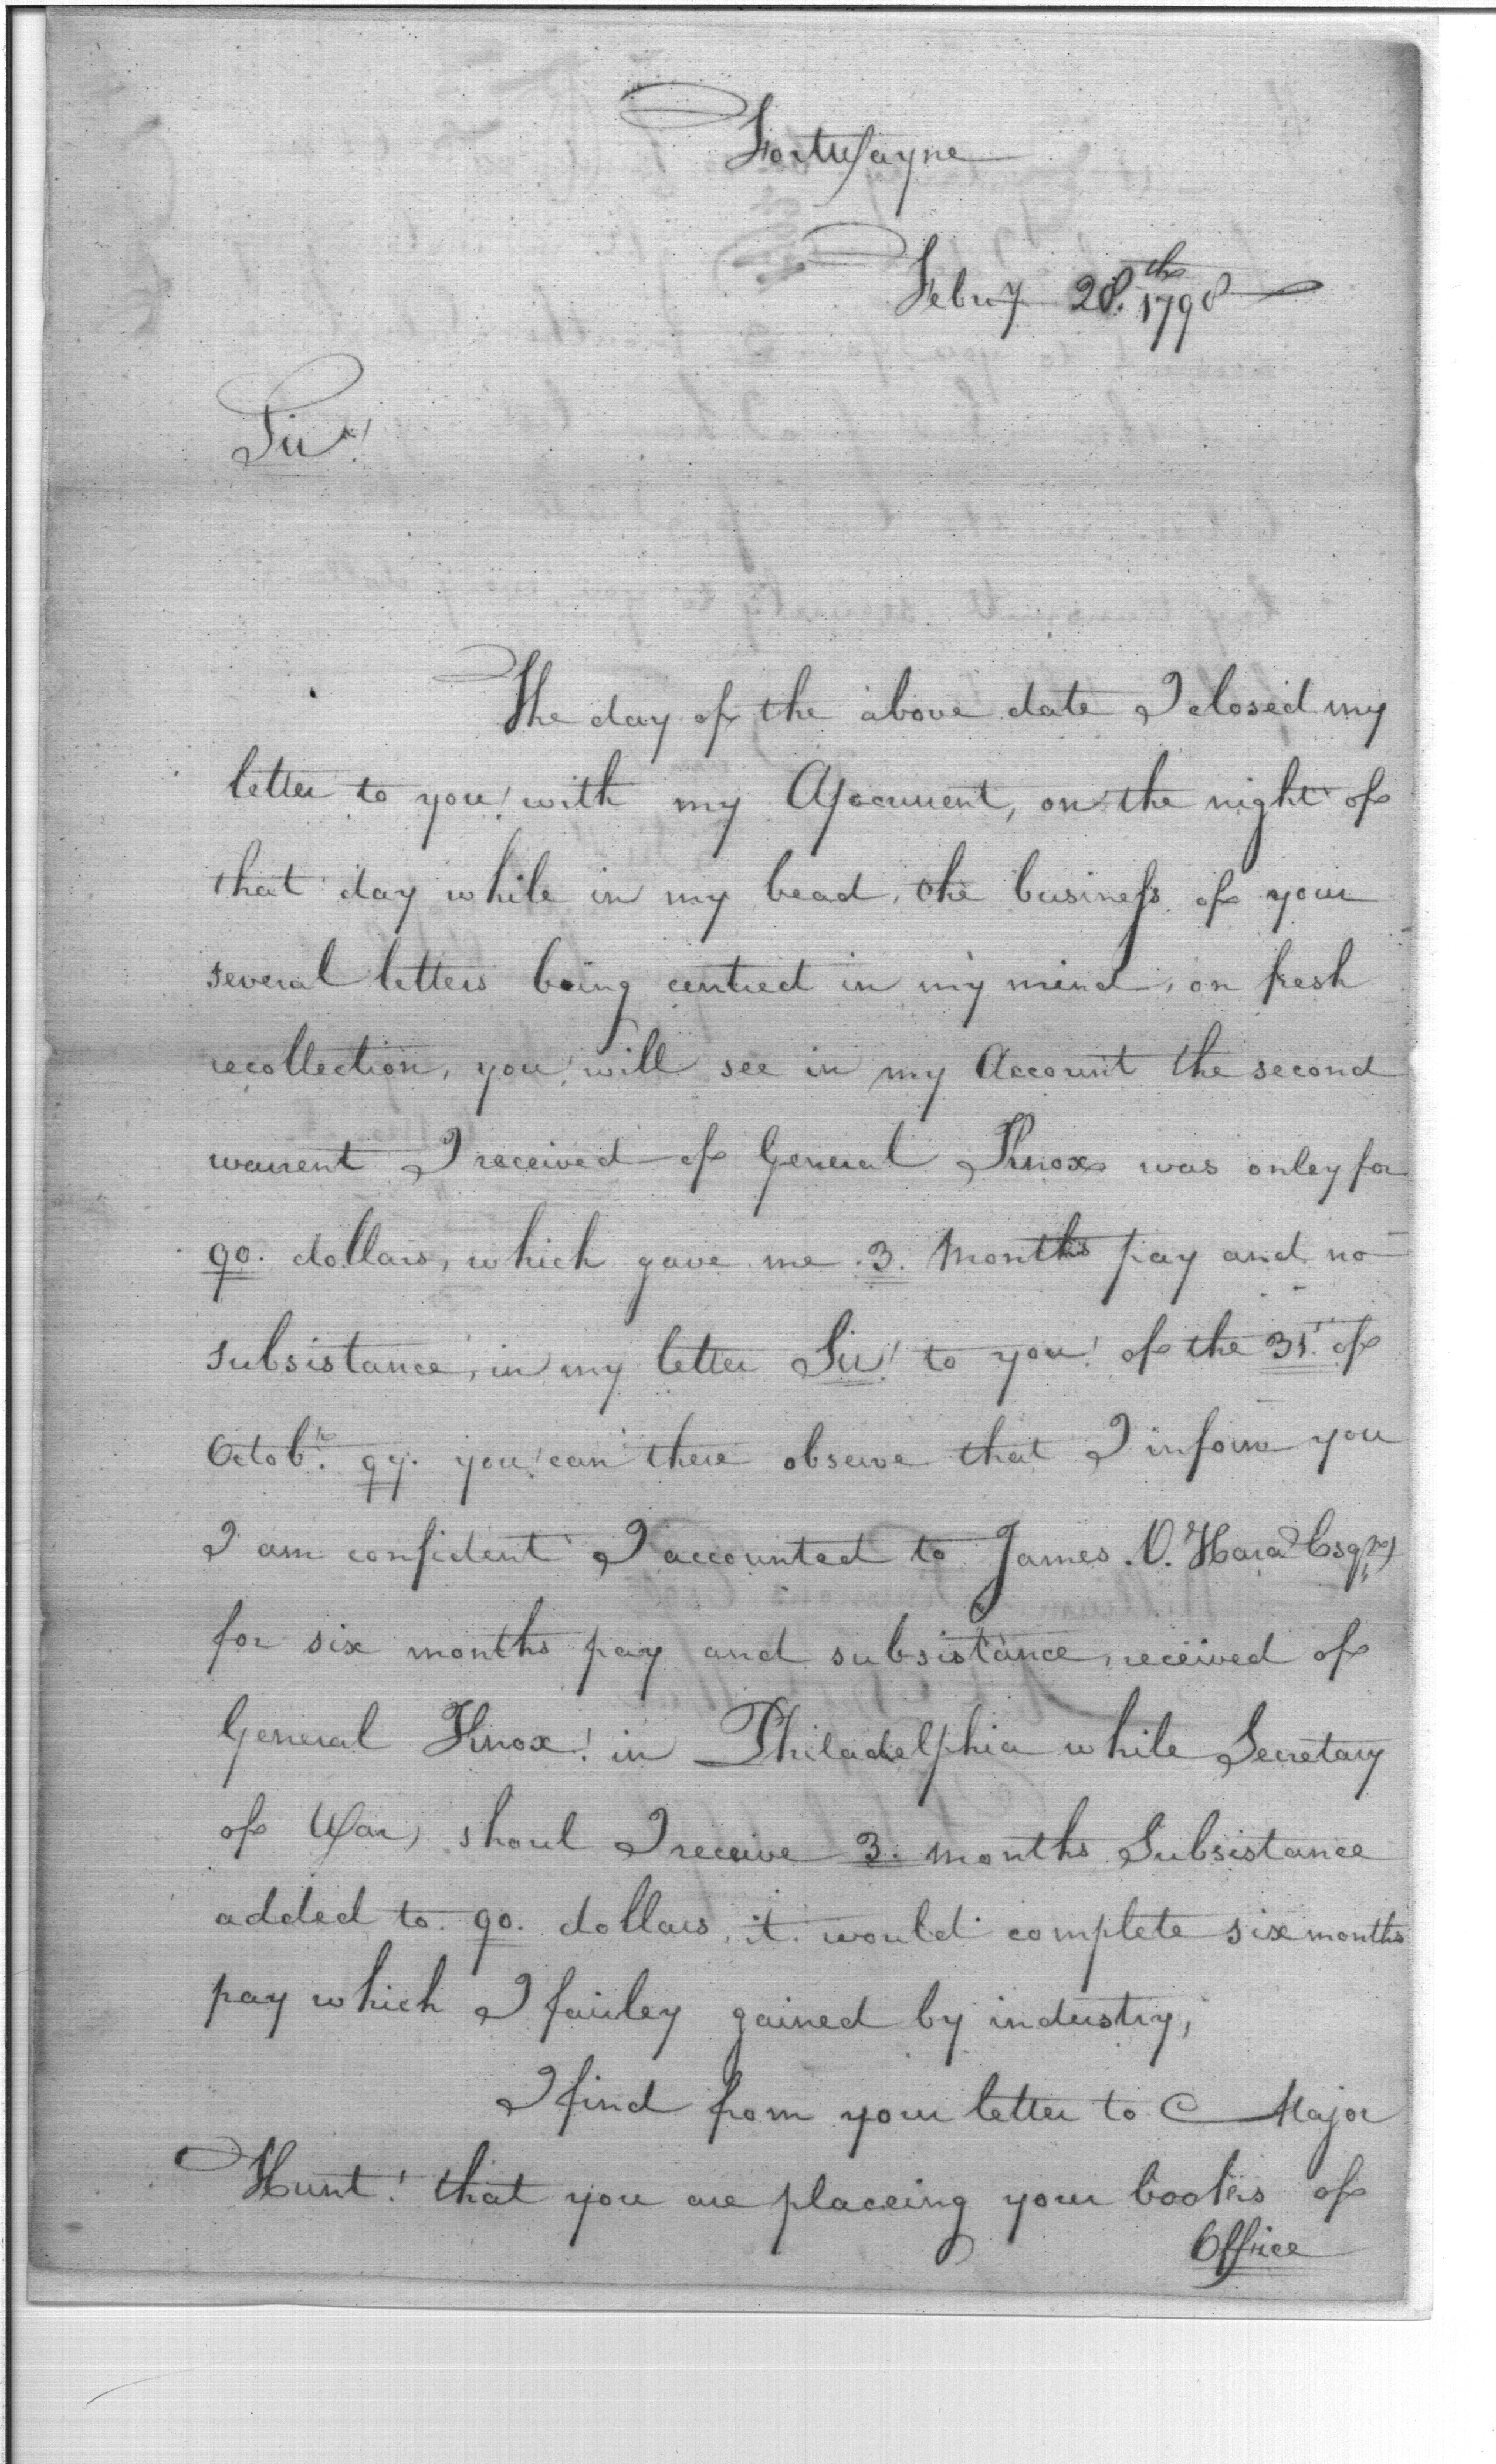 Fort Wayne
Febry 28.th 1798
Sir!
The day of the above date I closed my
letter to you! with my Account, on the night of
that day while in my bead, the business of your
several letters being centred in my mind, on fresh
recollection, you! will see in my Account the second
warrent I received of General Knox was onley for
90. dollars, which gave me .3. Months pay and no
subsistance, in my letter Sir! to you! of the 31st of
Octobr. 97. you! can there observe that I inform you
I am confident I accounted to James .O. Hara Esqr.
for six months pay and subsistance, received of
General Knox! in Philadelphia while Secretary
of War, shoul I receive 3. months Subsistance
added to 90. dollars, it would complete six months
pay which I fairley gained by industry,
I find from your letter to C Major
Hunt! that you are placeing your books of
Office